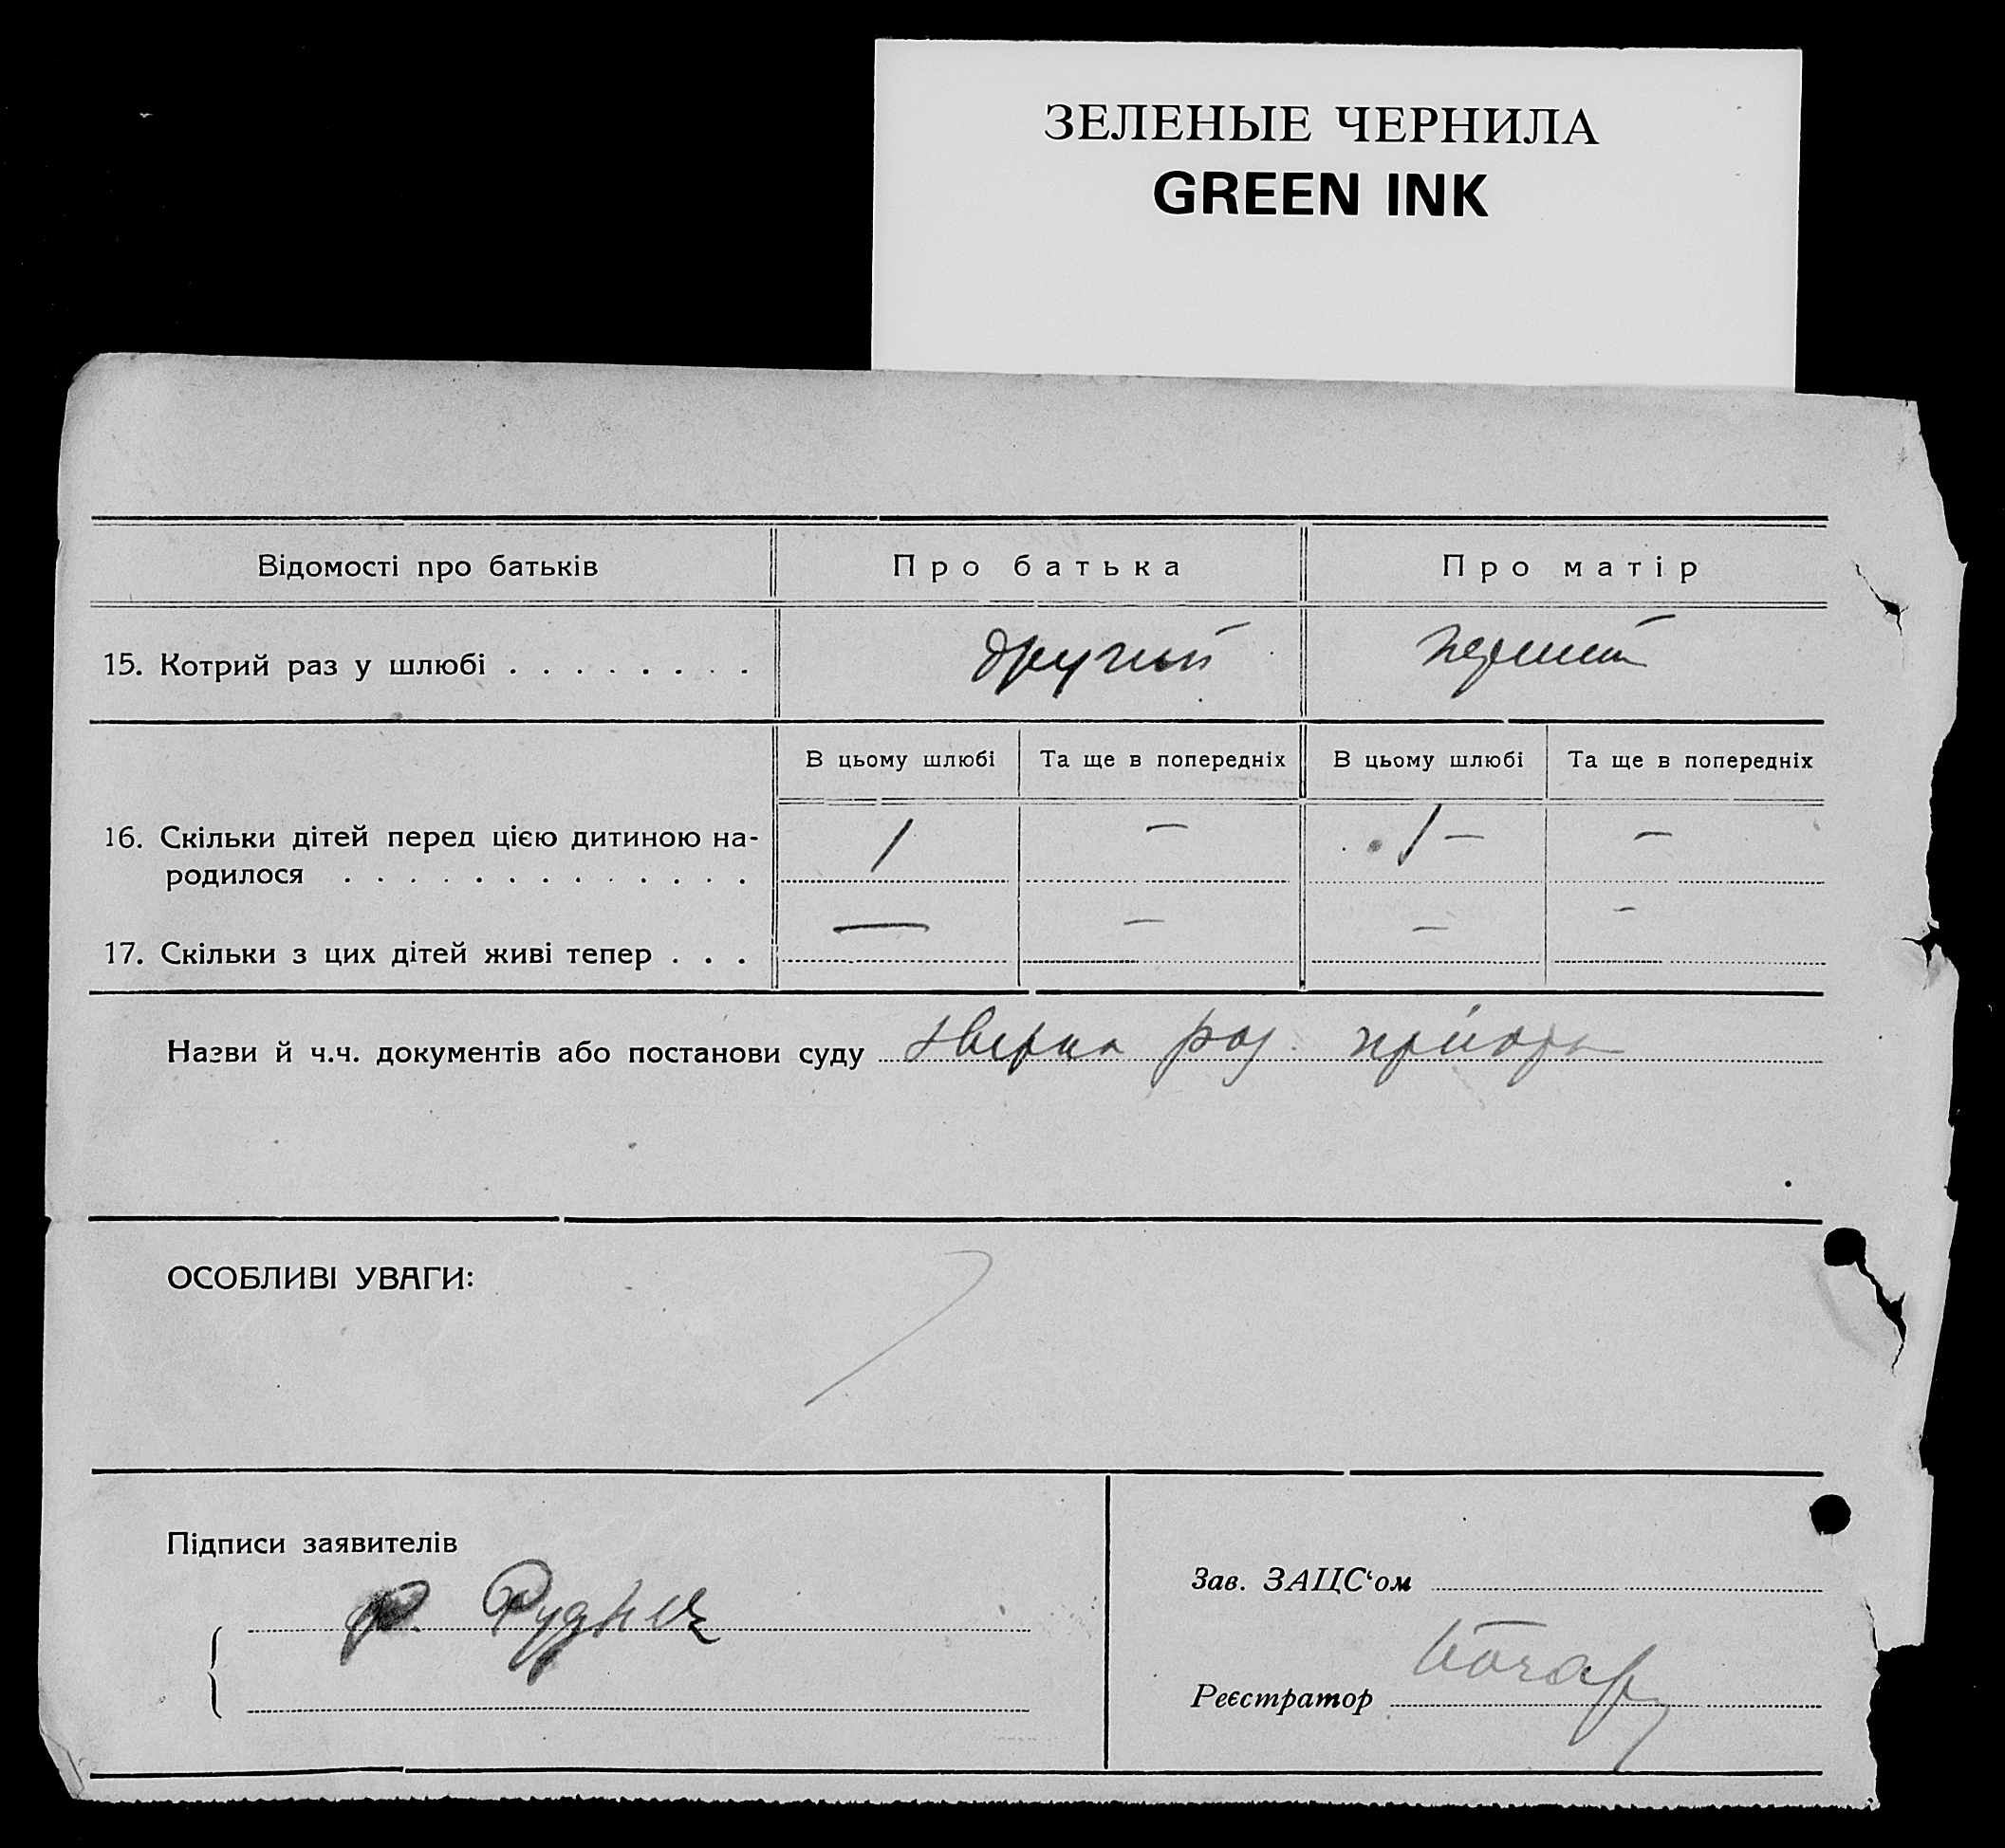 ЗЕЛЕНЫЕ ЧЕРНИЛА
GREEN INK
Відомості про батьків Про батька Про матір
15. Котрий раз у шлюбі . . . . . . . . другий перший
В цьому шлюбі Та ще в попередніх В цьому шлюбі Та ще в попередніх
16. Скільки дітей перед цією дитиною на-
родилося . . . . . . . . . . . . . 1 — 1 — —
17. Скільки з цих дітей живі тепер . . . — — — —
Назви й ч.ч. документів або постанови суду
ОСОБЛИВІ УВАГИ:
Підписи заявителів
Зав. ЗАЦС‘ом
Р. Рудник
Реєстратор